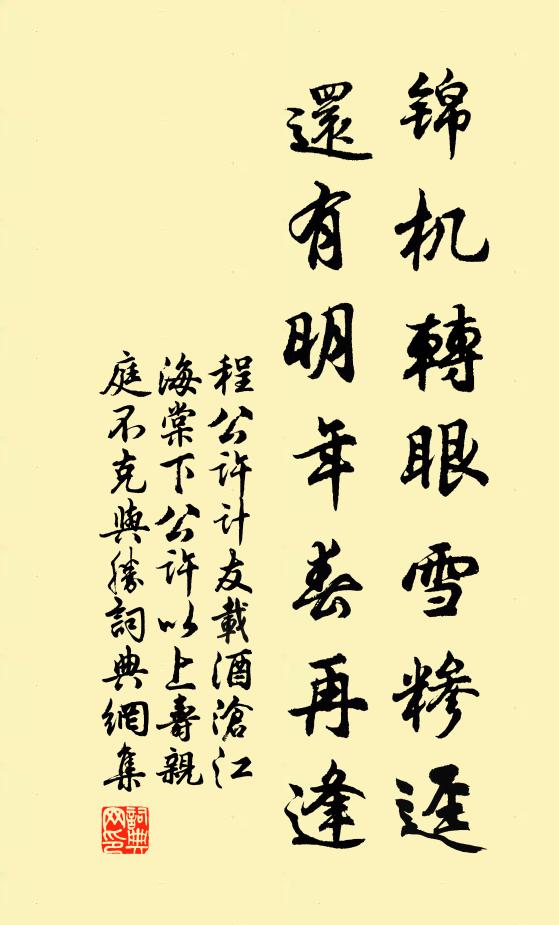 锦机轉眼雪糝逕
還有明年春再逢
程公許計友載酒滄江
海棠下公許以上壽親
庭不克與勝詞典網集
詞典
网印